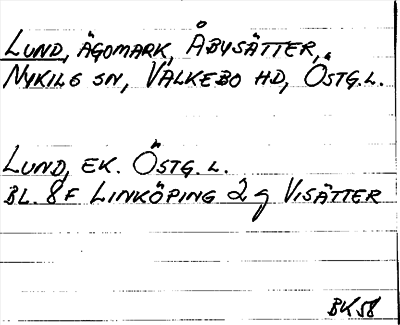 LUND, ÄGOMARK, ÅBYSÄTTER,
NYKILS SN, VALKEBO HD, ÖSTG.L.
LUND, EK. ÖSTG. L.
BL. 8F LINKÖPING 2g VISÄTTER
BK 58